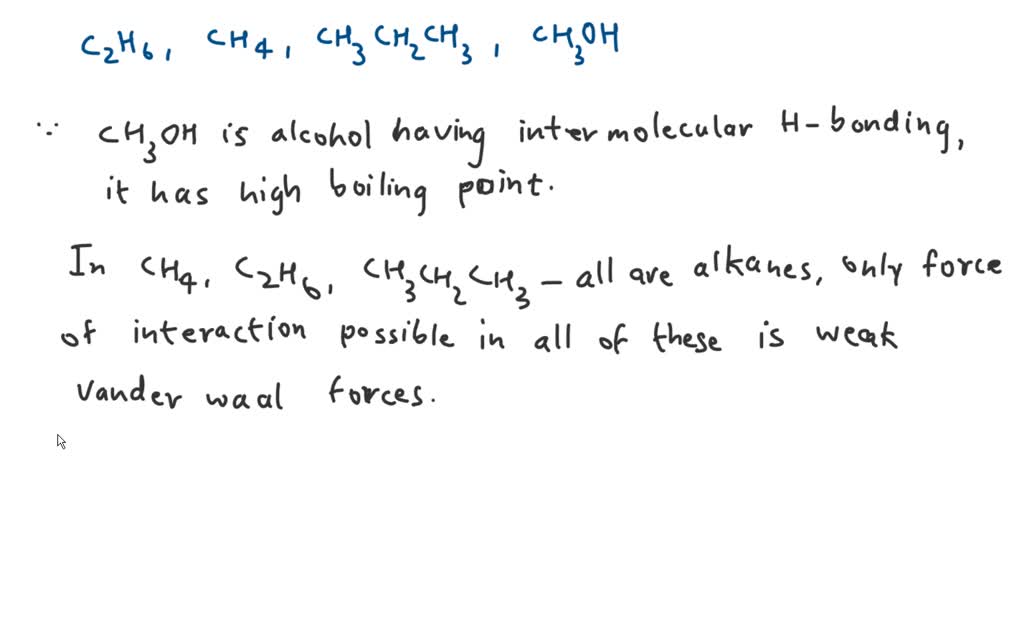 C₂H₆, CH₄, CH₃CH₂CH₃, CH₃OH
∵ CH₃OH is alcohol having intermolecular H-bonding,
it has high boiling point.
In CH₄, C₂H₆, CH₃CH₂CH₃ – all are alkanes, only force
of interaction possible in all of these is weak
Vander waal forces.